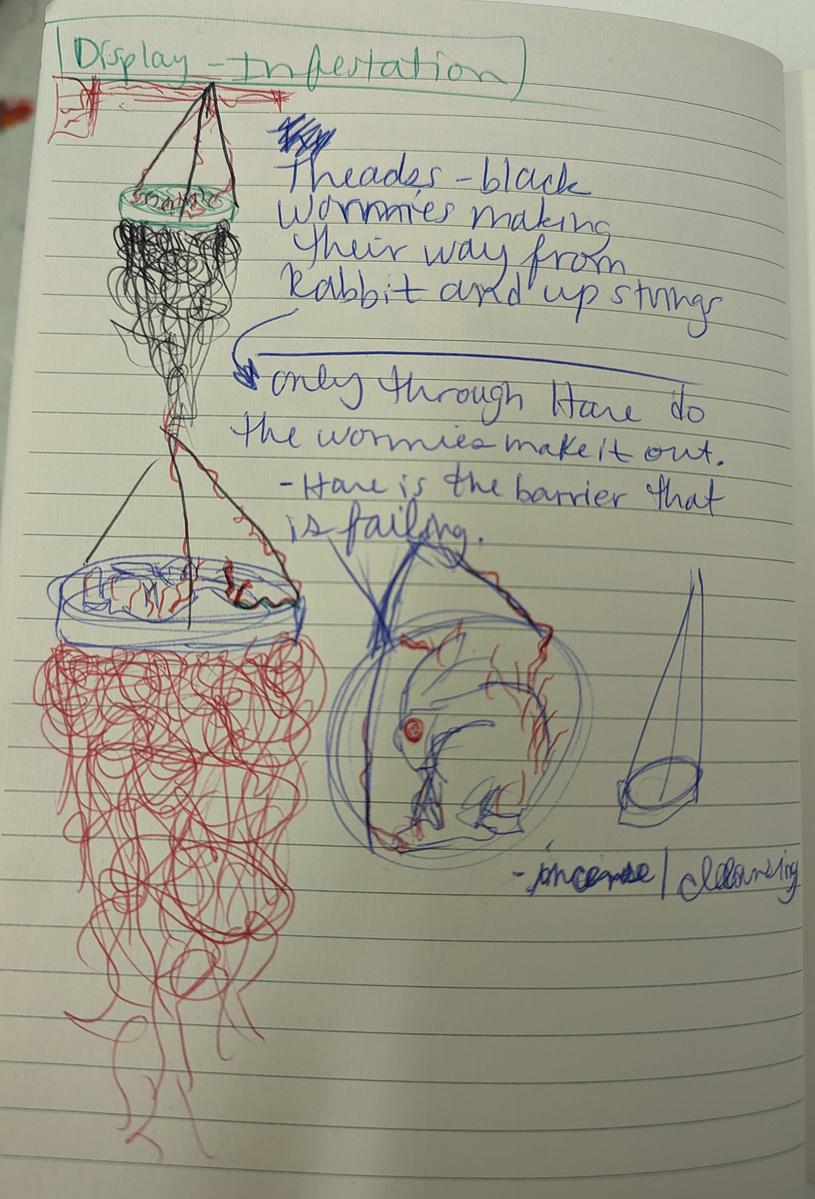 Display - Infestation
Theads - black
wormmies making
their way from
Rabbit and up strings
only through Hare do
the wormies make it out.
- Hare is the barrier that
is failing.
- incense / cleansing